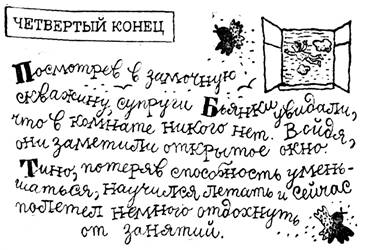 ЧЕТВЕРТЫЙ КОНЕЦ
Посмотрев в замочную
скважину, супруги Бьянки увидали,
что в комнате никого нет. Войдя,
они заметили открытое окно.
Тино, потеряв способность умень-
шаться, научился летать и сейчас
полетел немного отдохнуть
от занятий.